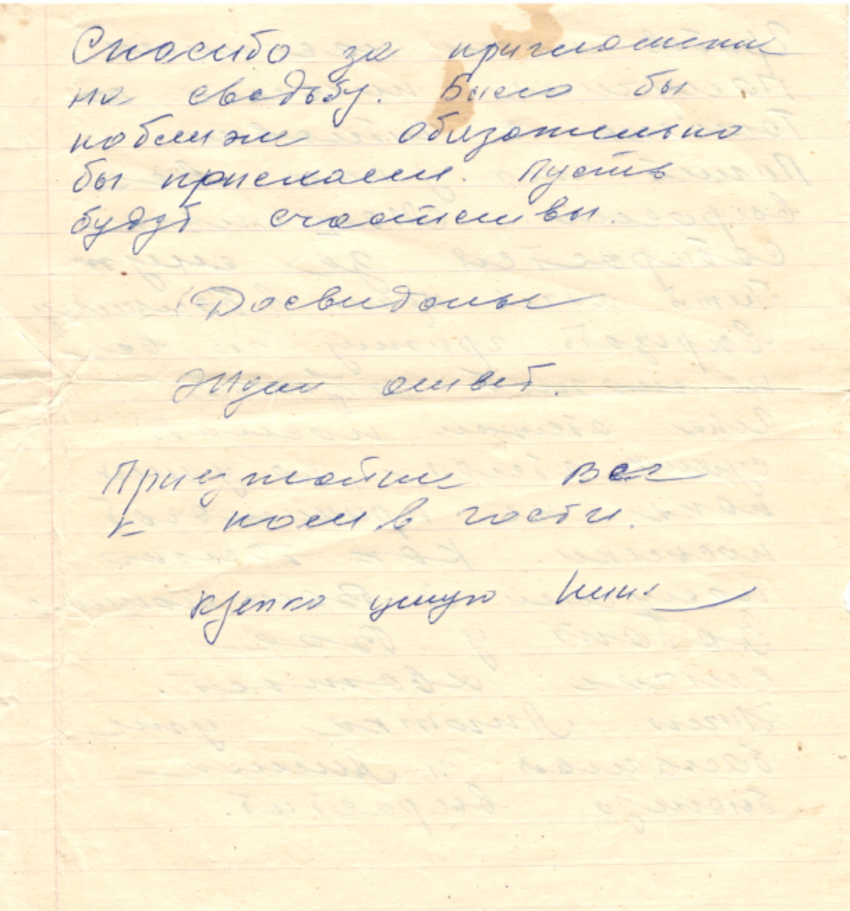 Спасибо за приглашение
на свадьбу. Было бы
поближе обязательно
бы приехали. Пусть
будут счастливы.
Досвиданье
Ждем ответ.
Приезжайте все
к нам в гости.
Крепко целую Нина